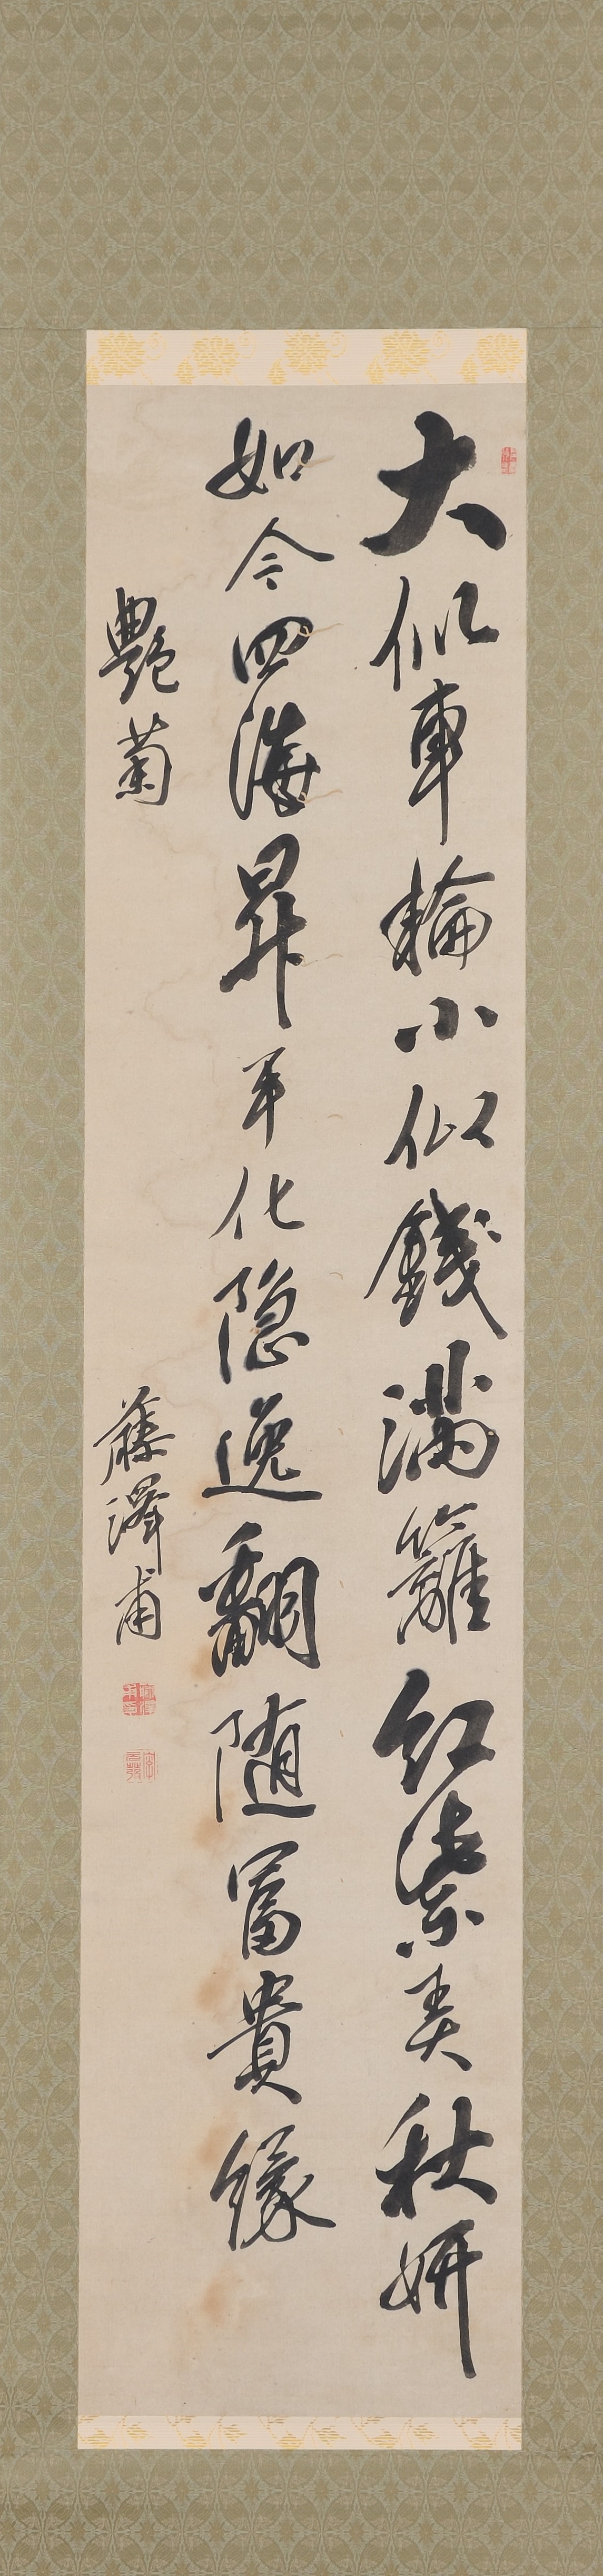 大似車輪小似錢満籬紅紫美秋妍
如今四海昇平化隠逸翻随冨貴縁
艶菊
藤澤甫